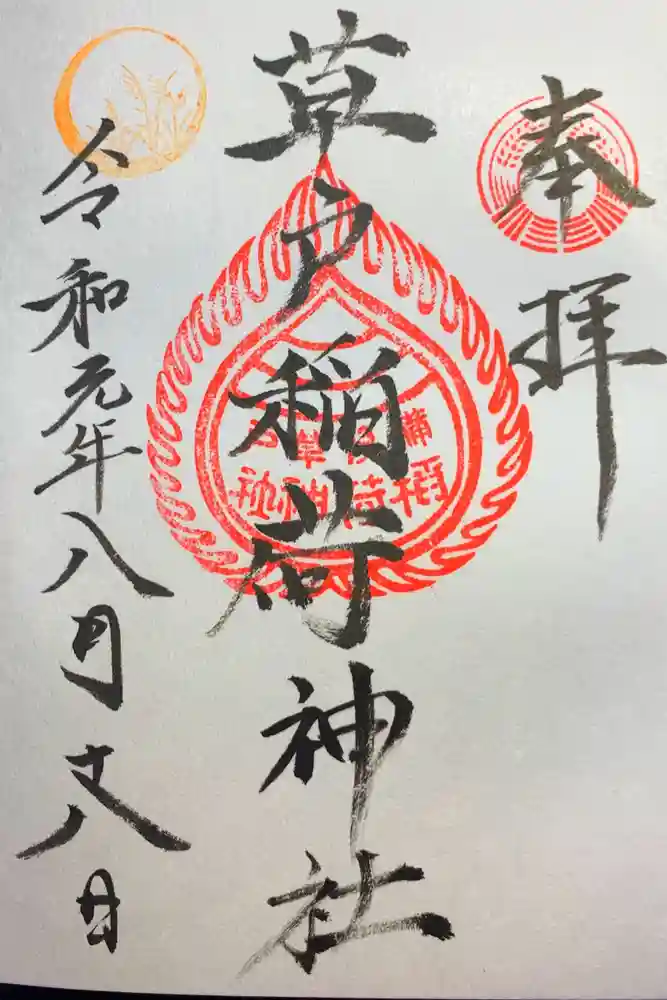 奉拝
草戸稲荷神社
備後草戸
稲荷神社
令和元年八月十八日